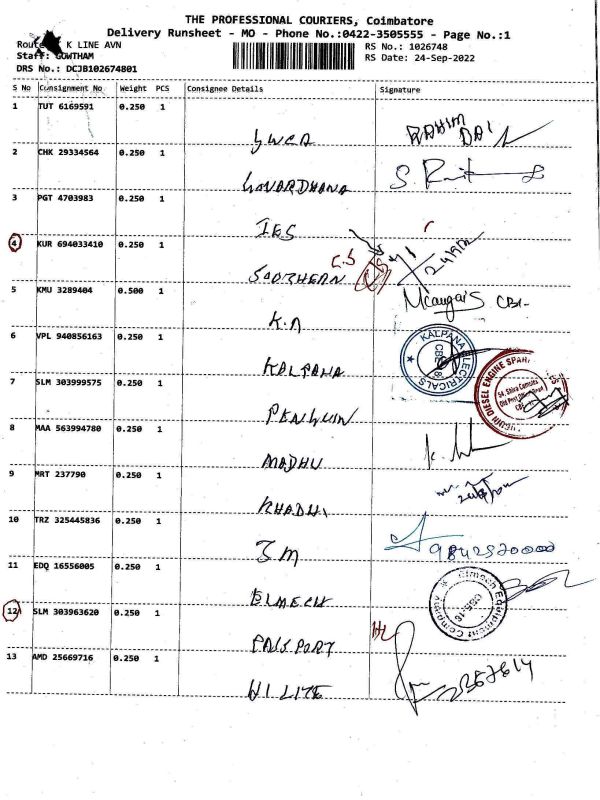 THE PROFESSIONAL COURIERS, Coimbatore
Delivery Runsheet - MO - Phone No.:0422-3505555 - Page No.:1
Route K LINE AVN
RS No.: 1026748
Staff: GOWTHAM
RS Date: 24-Sep-2022
DRS No.: DCJB102674801
S No Consignment No Weight PCS Consignee Details Signature
1 TUT 6169591 0.250 1
RAHIM
2 CHK 29334564 0.250 1
GOVARDHANA
3 PGT 4703983 0.250 1
IES
4 KUR 694033410 0.250 1
C.S
SOUTHERN
5 KMU 3289404 0.500 1
K.A
6 VPL 940856163 0.250 1
KALPANA
KALPANA ELECTRICALS
7 SLM 303999575 0.250 1
PENGUIN
DIESEL ENGINE
8 MAA 563994780 0.250 1
MADHU
9 MRT 237790 0.250 1
KHADHI
10 TRZ 325445836 0.250 1
3M
9842520000
11 EDQ 16556005 0.250 1
ELMECH
Elmech Equipment Company
12 SLM 303963620 0.250 1
HL
PASSPORT
13 AMD 25669716 0.250 1
HI LITE